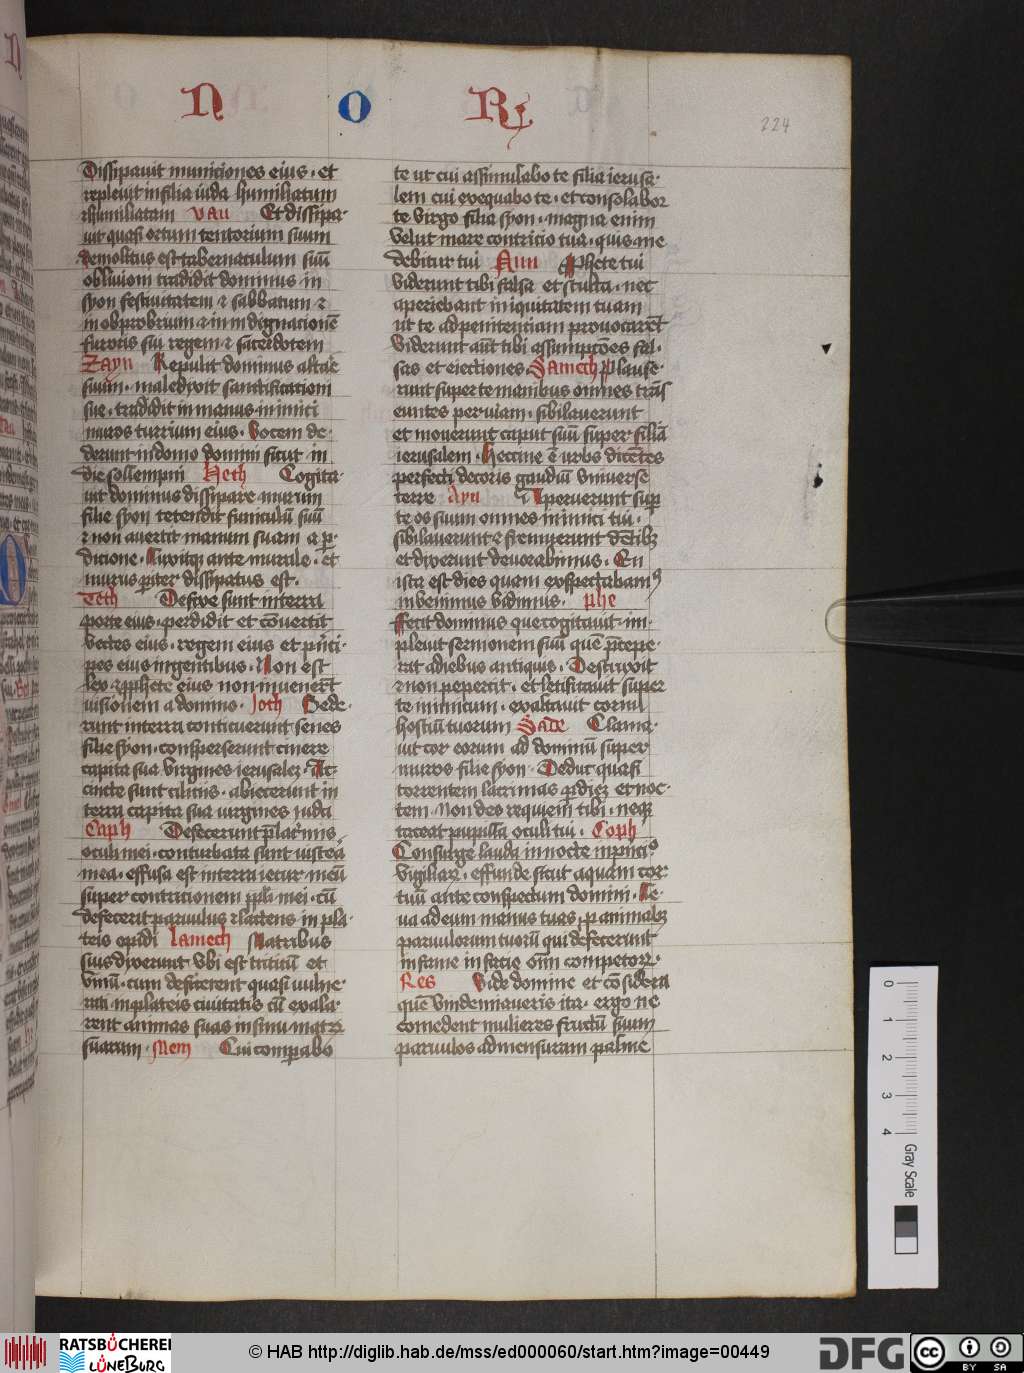 N O Rꝫ
224
Dissipauit municiones eius · et
repleuit in filia iuda humiliatum
⁊humiliatam vau Et dissipa·
uit quasi ortum tentorium suum
demolitus est tabernaculum suū
obliuioni tradidit dominus in
syon festiuitatem ⁊ sabbatum ⁊
in obprobrium ⁊ in indignacionē
furoris sui regem ⁊ sacerdotem
Zayn Repulit dominus altare
suum · maledixit sanctificacioni
sue · tradidit in manus inimici
muros turrium eius · Vocem de·
derunt in domo domini sicut in
die sollempni Heth Cogita·
uit dominus dissipare murum
filie syon tetendit funiculū suū
⁊ non auertit manum suam a ꝑ·
dicione · Luxitqꝫ ante murale · et
murus pariter dissipatus est ·
Teth Defixe sunt in terra
porte eius · perdidit et cōtriuit
vectes eius · regem eius et prīci·
pes eius in gentibus · Non est
lex ⁊ ꝓphete eius non inuenerūt
uisionem a domino · Joth Sede·
runt in terra conticuerunt senes
filie syon · consperserunt cinere
capita sua virgines ierusalꝫ · Ac·
cincte sunt ciliciis · abiecerunt in
terra capita sua uirgines iuda
Caph Defecerunt p̄ lacrimis
oculi mei · conturbata sunt uiscera
mea · effusa est in terra iecur meū
super contricionem ppl̄i mei · cū
defecerit paruulus ⁊ lactens in pla·
teis opidi Lamech Matribus
suis dixerunt Vbi est triticū et
vinū · cum deficerent quasi uulne·
rati in plateis ciuitatis cū exala·
rent animas suas in sinu matrꝫ
suarum · Mem Cui comparabo
te ut cui assimulabo te filia ierusa·
lem cui exequabo te · et consolabor
te virgo filia syon · magna enim
velut mare contricio tua · quis me
debitur tui Nun Prophete tui
viderunt tibi falsa et stulta · nec
aperiebant iniquitatem tuam
ut te ad penitentiam prouocarēt
Viderunt aūt tibi assumpcōes fal·
sas et eiectiones · Samech Plause·
runt super te manibus omnes trās
euntes per uiam · sibilauerunt
et mouerunt caput suū super filiā
ierusalem · Heccine ē urbs dicētes
perfecti decoris gaudiū vniuerse
terre Ayn Aperuerunt suꝑ
te os suum omnes inimici tui ·
sibilauerunt ⁊ fremuerunt dētibꝫ
et dixerunt deuorabimus · En
ista est dies quam exspectabamꝰ
inuenimus vidimus · phe
Fecit dominus que cogitauit · im·
pleuit sermonem suū quē p̄cepe·
rat a diebus antiquis · Destruxit
⁊ non pepercit · et letificauit super
te inimicum · exaltauit cornu
hostiū tuorum Sade Clama·
uit cor eorum ad dominū super
muros filie syon · Deduc quasi
torrentem lacrimas ꝑ diē et noc·
tem · Non des requiem tibi · neqꝫ
taceat pupilla oculi tui · Coph
Consurge lauda in nocte in principio
vigiliarꝫ · effunde sicut aquam cor
tuū ante conspectum domini · Le·
ua ad eum manus tuas p̄ animabꝫ
paruulorum tuorū qui defecerunt
in fame in facie omni competorꝫ ·
Res Vide domine et cōsidera
quē vindemiaueris ita · ergo ne
comedent mulieres fructū suum
paruulos ad mensuram palme
0 1 2 3 4 Gray Scale
RATSBÜCHEREI
LÜNEBURG
© HAB http://diglib.hab.de/mss/ed000060/start.htm?image=00449
DFG
cc BY SA